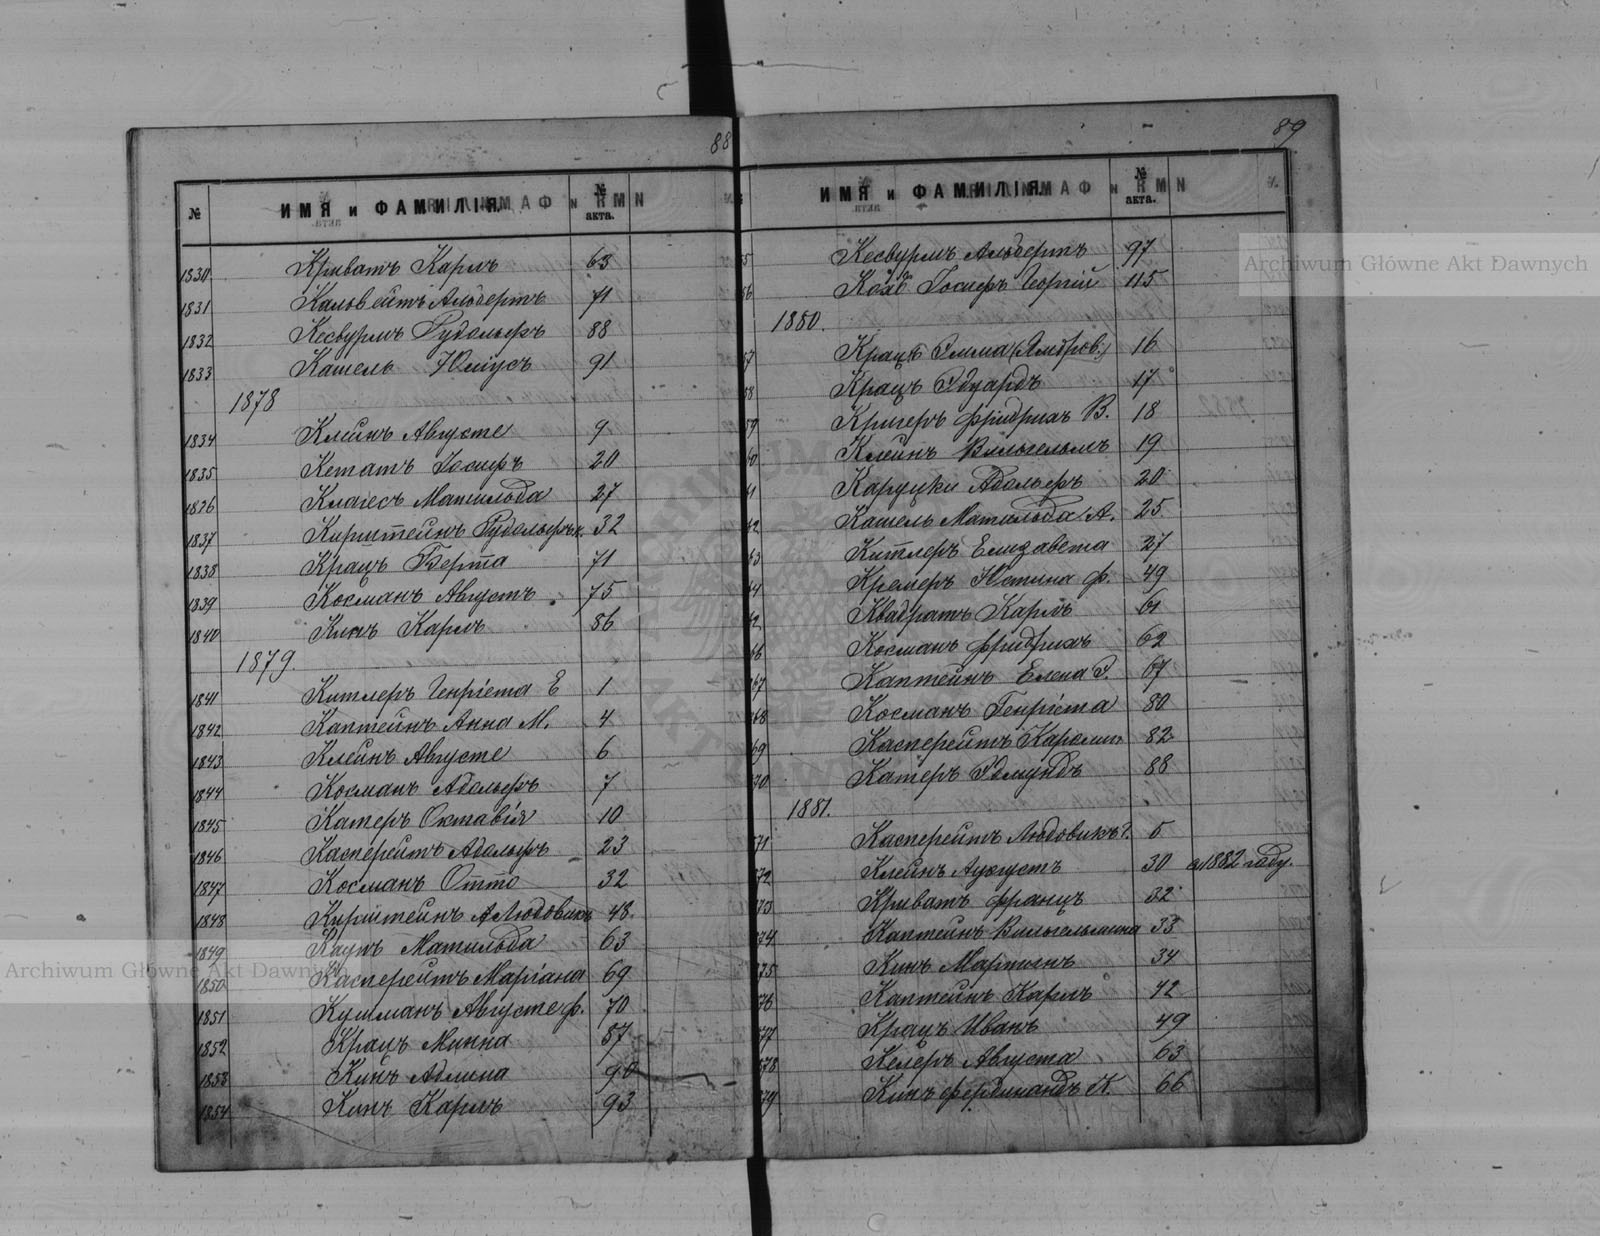 88
№ ИМЯ и ФАМИЛІЯ. № акта.
1830 Криватъ Карлъ 63
1831 Кальвейтъ Альбертъ 71
1832 Кесвурмъ Рудольфъ 88
1833 Кашель Юліусъ 91
1878
1834 Клейнъ Августе 9
1835 Кетатъ Іосифъ 20
1836 Клагесъ Матильда 27
1837 Кирштейнъ Рудольфъ К. 32
1838 Крацъ Берта 71
1839 Косманъ Августъ 75
1840 Кинъ Карлъ 86
1879.
1841 Китлеръ Генріета Е 1
1842 Каптейнъ Анна М. 4
1843 Клейнъ Августе 6
1844 Косманъ Адольфъ 7
1845 Катеръ Октавія 10
1846 Касперейтъ Адольфъ 23
1847 Косманъ Отто 32
1848 Кирштейнъ А Людовика 48.
1849 Каутъ Матильда 63
1850 Касперейтъ Маріана 69
1851 Кушманъ Августе Ф. 70
1852 Крацъ Минна 87
1853 Кинъ Адлина 90
1854 Кинъ Карлъ 93
89
ИМЯ и ФАМИЛІЯ. № акта.
55 Кесвурмъ Альбертъ 97
56 Кохъ Іосифъ Георгій 115
1880.
57 Крацъ Эмма 16
58 Крацъ Эдуардъ 17
59 Кригеръ Фридрихъ В. 18
60 Клейнъ Вильгельмъ 19
61 Каруцки Адольфъ 20
62 Кашель Матильда А. 25
63 Китлеръ Елизавета 27
64 Кремеръ Юстина Ф. 49
Квадратъ Карлъ 61
66 Косманъ Фридрихъ 62
67 Каптейнъ Елена Э. 67
68 Косманъ Генріета 80
69 Касперейтъ Каролина 82
70 Катеръ Эдмундъ 88
1881.
71 Касперейтъ Людовикъ Г. 5
72 Клейнъ Аугустъ 30 1882 году.
73 Криватъ Францъ 32
74 Каптейнъ Вильгельмина 33
75 Кинъ Мартинъ 34
76 Каптейнъ Карлъ 42
77 Крацъ Иванъ 49
78 Келеръ Августа 63
79 Кинъ Фердинандъ К. 66
Archiwum Główne Akt Dawnych
Archiwum Główne Akt Dawnych